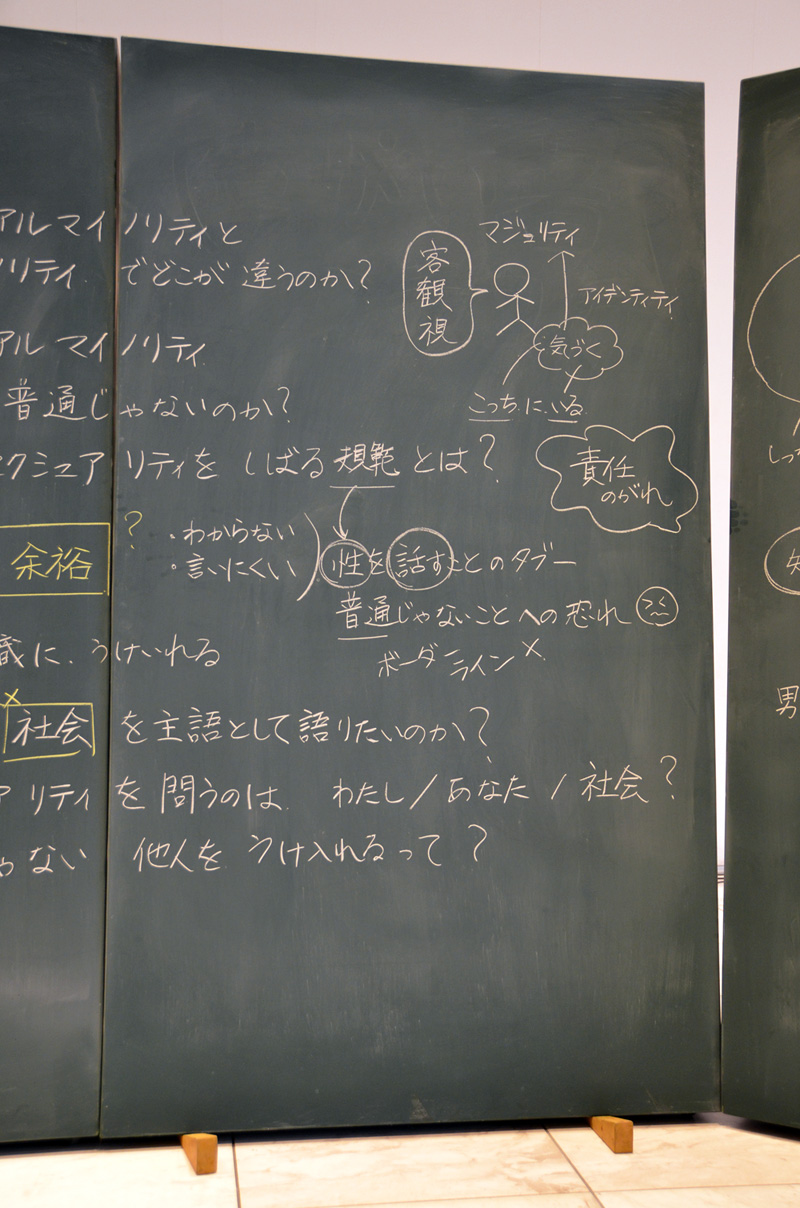 アルマイノリティと
ノリティ でどこが違うのか?
アルマイノリティ
普通じゃないのか?
クシュアリティをしばる規範とは?
マジョリティ
客観視
アイデンティティ
気づく
こっちにいる
責任
のがれ
余裕
?
・わからない
・言いにくい
性を話すことのタブー
普通じゃないことへの恐れ
ボーダーライン×
識に、うけいれる
×
社会を主語として語りたいのか?
アリティを問うのは わたし/あなた/社会?
ゃない 他人をうけ入れるって?
しっ
男